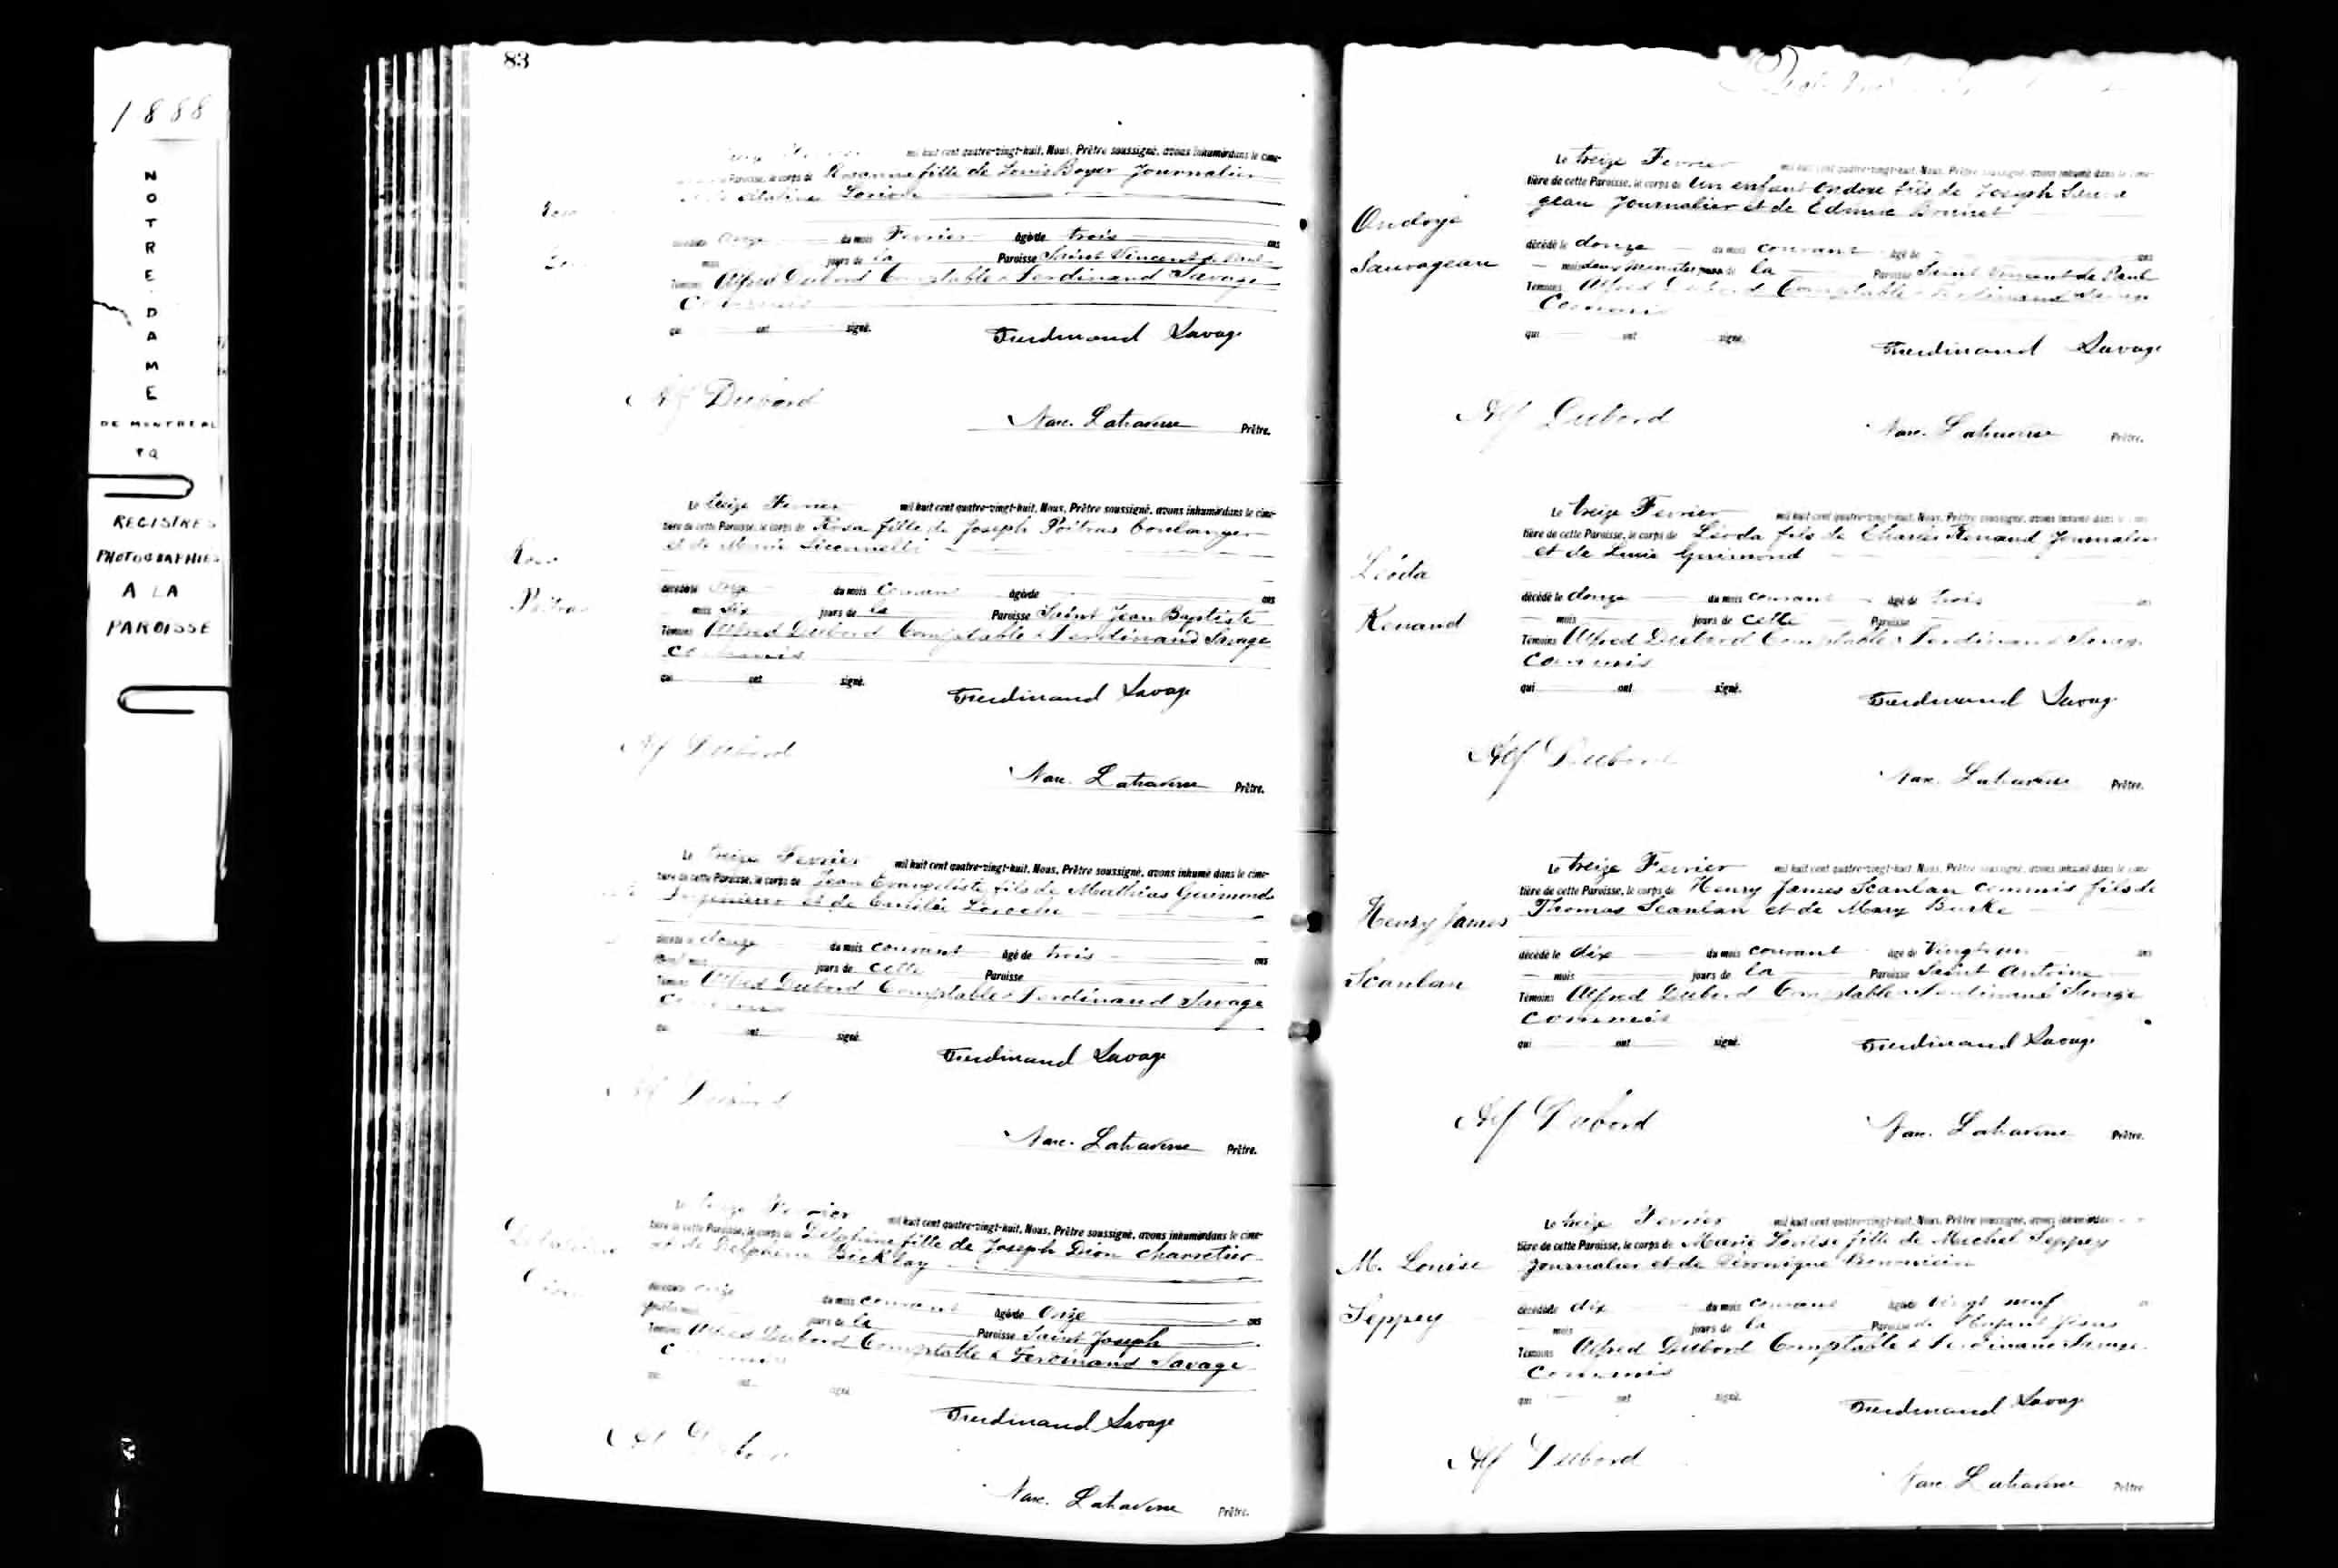 1888
NOTRE-DAME
DE MONTREAL
REGISTRES
PHOTOGRAPHIES
A LA
PAROISSE
83
Fevrier mil huit cent quatre-vingt-huit, Nous, Prêtre soussigné, avons inhumé dans le cime-
Paroisse, le corps de Rosanna fille de Louis Boyer Journalier
du mois Fevrier âgé de trois ans
jours de la Paroisse Saint Vincent de Paul
Témoins Alfred Dubord Comptable & Ferdinand Savage
Commis
qui ont signé.
Ferdinand Savage
Alf Dubord
Narc. Lahaverse Prêtre.
Le treize Fevrier mil huit cent quatre-vingt-huit, Nous, Prêtre soussigné, avons inhumé dans le cime-
tière de cette Paroisse, le corps de Rosa fille de Joseph Poitras boulanger
et de Marie
Rosa
Poitras
décédé le du mois courant âgé de ans
mois six jours de la Paroisse Saint Jean Baptiste
Témoins Alfred Dubord Comptable & Ferdinand Savage
commis
qui ont signé.
Ferdinand Savage
Alf Dubord
Narc. Lahaverse Prêtre.
Le treize Fevrier mil huit cent quatre-vingt-huit, Nous, Prêtre soussigné, avons inhumé dans le cime-
tière de cette Paroisse, le corps de Jean Evangeliste fils de Mathias Guimond
et de Emélie Laroche
décédé le douze du mois courant âgé de trois ans
mois jours de cette Paroisse
Témoins Alfred Dubord Comptable & Ferdinand Savage
Commis
qui ont signé.
Ferdinand Savage
Alf Dubord
Narc. Lahaverse Prêtre.
Le treize Fevrier mil huit cent quatre-vingt-huit, Nous, Prêtre soussigné, avons inhumé dans le cime-
tière de cette Paroisse, le corps de Delphine fille de Joseph Dion charretier
et de Delphine Bicklay
décédé onze du mois courant âgé de Onze ans
mois jours de la Paroisse Saint Joseph
Témoins Alfred Dubord Comptable & Ferdinand Savage
commis
Ferdinand Savage
Alf Dubord
Narc. Lahaverse Prêtre.
Le treize Fevrier mil huit cent quatre-vingt-huit, Nous, Prêtre soussigné, avons inhumé dans le cime-
tière de cette Paroisse, le corps de Un enfant ondoyé fils de Joseph Sauva
geau Journalier et de Edmire Brunet
Ondoyé
Sauvageau
décédé le douze du mois courant âgé de ans
mois deux minutes de la Paroisse Saint Vincent de Paul
Témoins Alfred Dubord Comptable & Ferdinand Savage
Commis
qui ont signé.
Ferdinand Savage
Alf Dubord
Narc. Lahaverse Prêtre.
Le treize Fevrier mil huit cent quatre-vingt-huit, Nous, Prêtre soussigné, avons inhumé dans le cime-
tière de cette Paroisse, le corps de Léoda fils de Charles Renaud Journalier
et de Luce Guimond
Léoda
Renaud
décédé le douze du mois courant âgé de trois ans
mois jours de cette Paroisse
Témoins Alfred Dubord Comptable & Ferdinand Savage
commis
qui ont signé.
Ferdinand Savage
Alf Dubord
Narc. Lahaverse Prêtre.
Le treize Fevrier mil huit cent quatre-vingt-huit, Nous, Prêtre soussigné, avons inhumé dans le cime-
tière de cette Paroisse, le corps de Henry James Scanlan commis fils de
Thomas Scanlan et de Mary Burke
Henry James
Scanlan
décédé le dix du mois courant âgé de Vingt un ans
mois jours de la Paroisse Saint Antoine
Témoins Alfred Dubord Comptable & Ferdinand Savage
commis
qui ont signé.
Ferdinand Savage
Alf Dubord
Narc. Lahaverse Prêtre.
Le treize Fevrier mil huit cent quatre-vingt-huit, Nous, Prêtre soussigné, avons inhumé dans le
tière de cette Paroisse, le corps de Marie Louise fille de Michel Seppey
Journalier et de Véronique
M. Louise
Seppey
décédé le dix du mois courant âgé de Vingt neuf
mois jours de la Paroisse de l'Enfant Jésus
Témoins Alfred Dubord Comptable & Ferdinand Savage
commis
qui ont signé.
Ferdinand Savage
Alf Dubord
Narc. Lahaverse Prêtre